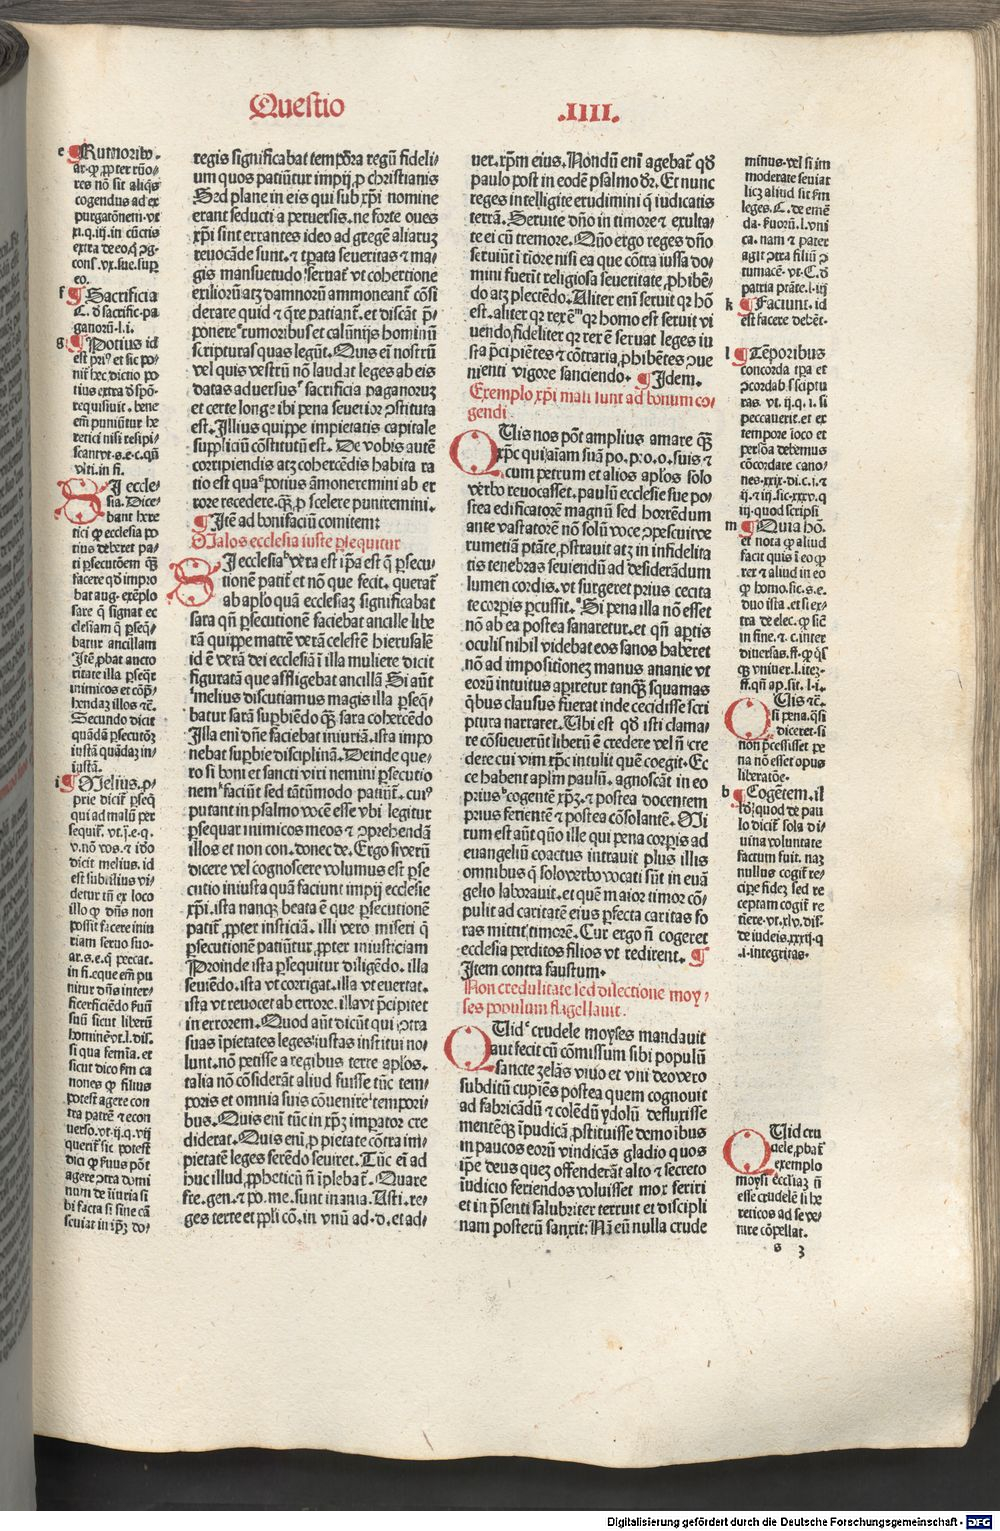 Questio .IIII.
e ¶ Rumorib9.
ar. ꝙ ꝓpter rũo/
res nõ sit aliq̃s
cogendus ad ex
purgatõnem. vt
xi. q. iij. in cũctis
cons. vx. sue. suꝑ
eo.
f ¶ Sacrificia
C. ð sacrific. pa
ganorũ. l. i.
g ¶ Potius id
nĩt hec dictio po
tius extra ð spõ.
requisiuit. bene
em̃ puniũtur he
retici nisi resipi/
scant vt. s. e. c. qñ
vlti. in fi.
SI eccle/
sia. Dice/
bant here
tici ꝙ ecclesia po
tius deberet pa/
ti ꝑsecutõem q̃ꝫ
facere qð impro
bat aug. exẽplo
sare q̃ signat ec
clesiam q̃ ꝑseq̃/
batur ancillam
Itẽ ꝓbat aucto
ritate illa ꝑseq̃r
inimicos et cõp̃/
hendaꝫ illos ⁊c̃.
Secundo dicit
quãdã ꝑsecutõꝫ
iustã quãdaꝫ in/
iustã.
i ¶ Melius. ꝓ/
prie dicit̃ ꝑseq̃
qui ad malũ per
sequit̃. vt. j. e. q.
v. nõ vos. ⁊ iðo
dicit melius. id
est subtilius vi/
detur tñ ex loco
illo ꝙ dñs non
possit facere iniu
riam seruo suo.
ar. s. e. q̃ peccat.
in fi. eque em̃ pu
nitur dñs inter/
ficiendo ẜuũ
suũ sicut liberũ
hominẽ vt. l. dis.
si qua femĩa. et
sicut dico ẜm ca
nones ꝙ filius
potest agere con
tra patrẽ ⁊ econ
uerso. vt. ij. q. vij
querit̃ sic potest
dici ꝙ ẜuus põt
agere ꝯtra domi
num de iĩuria si
bi facta si sine cã
seuiat in ip̃ꝫ do/
regis significabat tempora regũ fideli/
um quos patiũtur impij ꝓ christianis
Sed plane in eis qui sub xp̃i nomine
erant seducti a peruersis. ne forte oues
xp̃i sint errantes ideo ad gregẽ aliaruꝫ
reuocãde sunt. ⁊ tꝑata seueritas ⁊ ma/
gis mansuetudo seruat̃ vt cohertione
exiliorũ atꝫ damnorũ ammoneant̃ cõsi
derare quid ⁊ q̃re patiant̃. et discãt p̃/
ponere rumoribus et calũnijs hominũ
scripturas quas legũt. Quis em̃ nostrũ
vel quis vestrũ nõ laudat leges ab eis
datas aduersus sacrificia paganoruꝫ
et certe longe ibi pena seuerior ꝯstituta
est. Illius quippe impietatis capitale
suppliciũ cõstitutũ est. De vobis autẽ
corripiendis atꝫ cohercẽdis habita ra
tio est qua potius ãmoneremini ab er
rore recedere. q̃ꝫ ꝓ scelere puniremini.
¶ Itẽ ad bonifaciũ comitem:
Malos ecclesia iuste ꝑsequitur
SI ecclesia vera est ip̃a est q̃ ꝑsecu/
tionẽ patit̃ et nõ que fecit. querat̃
ab apl̃o quã ecclesiaꝫ significabat
sara qñ ꝑsecutionẽ faciebat ancille libe
rã quippe matrẽ verã celestẽ hierusalẽ
id ẽ verã dei ecclesiã ĩ illa muliere dicit
figuratã que affligebat ancillã Si aũt
melius discutiamus magis illa ꝑseq̃/
batur sarã suꝑbiẽdo q̃ꝫ sara cohercẽdo
Illa eni dñe faciebat iniuriã. ista impo
nebat suꝑbie disciplinã. Deinde que/
ro si boni et sancti viri nemini ꝑsecutio
nem faciũt sed tãtũmodo patiũt̃. cui9
putant in psalmo vocẽ esse vbi legitur
ꝑsequar inimicos meos ⁊ ꝯprehendã
illos et non con. donec de. Ergo si verũ
dicere vel cognoscere volumus est ꝑse
cutio iniusta quã faciunt impij ecclesie
xp̃i. ista nanqꝫ beata ẽ que ꝑsecutionẽ
patit̃ ꝓpter iusticiã. illi vero miseri q̃
ꝑsecutionẽ patiũtur ꝓpter iniusticiam
Proinde ista ꝑsequitur diligẽdo. illa
seuiẽdo. ista vt corrigat. illa vt euertat.
ista vt reuocet ab errore. illa vt p̃cipitet
in errorem. Quod aũt dicũt qui ꝯtra
suas ĩpietates leges iustas institui no/
lunt. nõ petisse a regibus terre apl̃os.
talia nõ cõsiderãt aliud fuisse tũc tem/
poris et omnia suis cõuenire tempori/
bus. Quis enĩ tũc in xp̃ꝫ imꝑator cre
diderat. Quis enĩ ꝓ pietate cõtra im/
pietatẽ leges ferẽdo seuiret. Tũc eĩ ad
huc illud ꝓpheticũ ĩplebat̃. Quare
fre. gen. ⁊ po. me. sunt inania. Asti. re/
ges terre et ṗpli cõ. in vnũ ad. d. et ad/
uer. xp̃m eius. Nondũ enĩ agebat̃ qð
paulo post in eodẽ psalmo ðr. Et nunc
reges intelligite erudimini q̃ iudicatis
terrã. Seruite dño in timore ⁊ exulta/
te ei cũ tremore. Quõ ergo reges dño
seruiũt ĩ tiore nisi ea que cõtra iussa do/
mini fuerĩt religiosa seueritate ꝓhibẽ/
do atꝫ plectẽdo. Aliter enĩ seruit qꝛ hõ
est. aliter qꝛ rex ẽ qꝛ homo est seruit vi
uendo fideliter qꝛ rex ẽ seruat leges iu
sta p̃cipiẽtes ⁊ cõtraria ꝓhibẽtes ꝯue
nienti vigore sanciendo. ¶ Idem.
Exemplo xp̃i mali sunt ad bonum co/
gendi.
QUis nos põt amplius amare q̃ꝫ
xp̃c qui aĩam suã po. p. o. o. suis ⁊
cum petrum et alios apl̃os solo
verbo reuocasset. paulũ ecclesie sue po/
stea edificatorẽ magnũ sed horrẽdum
ante vastatorẽ nõ solũ voce ꝯpescuit ve
rumetiã ptãte ꝓstrauit atꝫ in infidelita
tis tenebras seuiendũ ad desiderãdum
lumen cordis. vt surgeret prius cecita
te corpis ꝑcussit. Si pena illa nõ esset
nõ ab ea postea sanaretur. et qñ aꝑtis
oculis nihil videbat eos sanos haberet
nõ ad impositionẽꝫ manus ananie vt
eorũ intuitus aꝑiretur tanq̃ꝫ squamas
q̃bus clausus fuerat inde cecidisse scri
ptura narraret. Ubi est qð isti clama/
re cõsueuerũt liberũ ẽ credere vel ñ cre
dere cui vim xp̃c intulit quẽ coegit. Ec
ce habent apl̃m paulũ. agnoscãt in eo
prius cogentẽ xp̃ꝫ. ⁊ postea docentem
prius ferientẽ ⁊ postea cõsolantẽ. Mi
rum est aũt quõ ille qui pena corꝑis ad
euangeliũ coactus intrauit plus illis
omnibus q̃ solo verbo vocati sũt in euã
gelio laborauit. et quẽ maior timor cõ/
pulit ad caritatẽ eius ꝑfecta caritas fo
ras mittit timorẽ. Cur ergo ñ cogeret
ecclesia perditos filios vt redirent. ¶
Item contra faustum.
Non crudelitate sed dilectione moy/
ses populum flagellauit.
QUid crudele moyses mandauit
aut fecit cũ cõmissum sibi populũ
sancte zelãs viuo et vni deo vero
subditũ cupiẽs postea quem cognouit
ad fabricãdũ ⁊ colẽdũ ydolũ defluxisse
mentẽꝫ ĩpudicã ꝓstituisse demoĩbus
in paucos eorũ vindicãs gladio quos
ip̃e deus quẽ offenderãt alto ⁊ secreto
iudicio feriendos voluisset mox feriri
et in p̃senti salubriter terruit et discipli
nam posterũ sanxit: Nã eũ nulla crude
minus. vel si im
moderate seuiat
licꝫ aliud sit ẜm
leges. C. de emẽ
da. ẜuorũ. l. vni
ca. nam ⁊ pater
agit ꝯtra filiũ ꝯ
tumacẽ. vt. C. ð
patria ptãte. l. iij
k ¶ Faciunt. id
est facere debẽt.
l ¶ Tẽporibus
concorda tꝑa et
ꝯcordab̃ sc̃iptu
ras. vt. ij. q. i. si
peccauerit. et ex
tempore loco et
persõa debemus
cõcordare cano/
nes. xxix. di. c. i. ⁊
ij. ⁊ iij. sic. xxxv. q
iij. quod scripsi
m ¶ Quia ho.
et nota ꝙ aliud
facit quis ĩ eo ꝙ
rex ⁊ aliud in eo
ꝙ homo. sic. s. e.
duo ista. et si ex/
tra de elec. ꝙ sic̃
in fine. ⁊. c. inter
diuersas. ff. ꝙ q̃s
q̃ vniuer. l. iteꝫ.
ff. qñ ap. sit. l. i.
QUis ⁊c̃.
si pena. q̃si
diceret. si
non p̃cessisset pe
na nõ esset opus
liberatõe.
b ¶ Cogẽtem. il
lo quod de pau
lo dicit̃ sola di/
uina voluntate
factum fuit. naꝫ
nullus cogit̃ re
ciꝑe fideꝫ sed re
ceptam cogit̃ re
tiere. vt. xlv. dis.
de iudeis. xxxij. q
.i. integritas.
QUid cru
dele. ꝓbat̃
exemplo
moysi eccl̃iaꝫ ñ
esse crudelẽ si he
reticos ad se ve/
nire cõpellat.
s 3
Digitalisierung gefördert durch die Deutsche Forschungsgemeinschaft - DFG